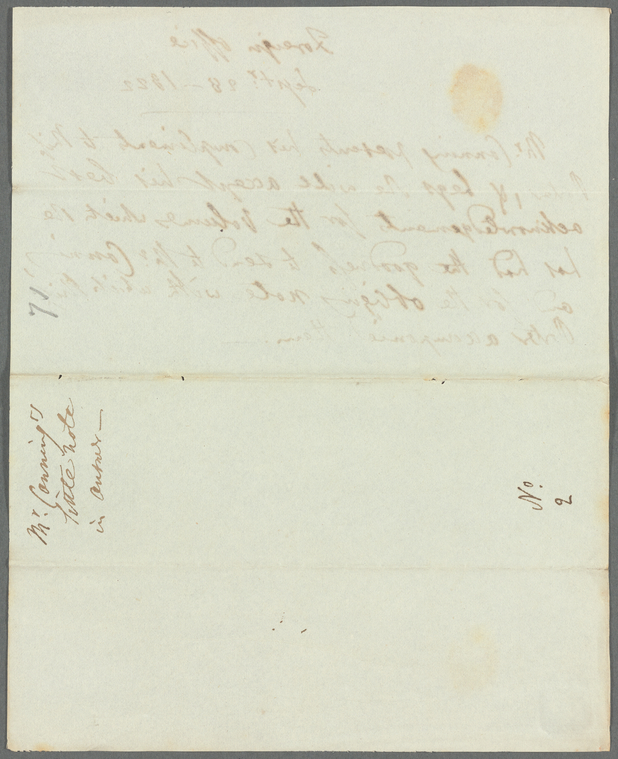 Foreign Office
Septr. 28 - 1822
Mr. Canning presents his Compliments to Miss
Porter, & begs she will accept his best
acknowledgements for the Volumes which she
has had the goodness to send to Mr. Canning
& for the obliging note with which Miss
Porter accompanied them
71
Mr. Canning's
little note
in answer —
No.
2